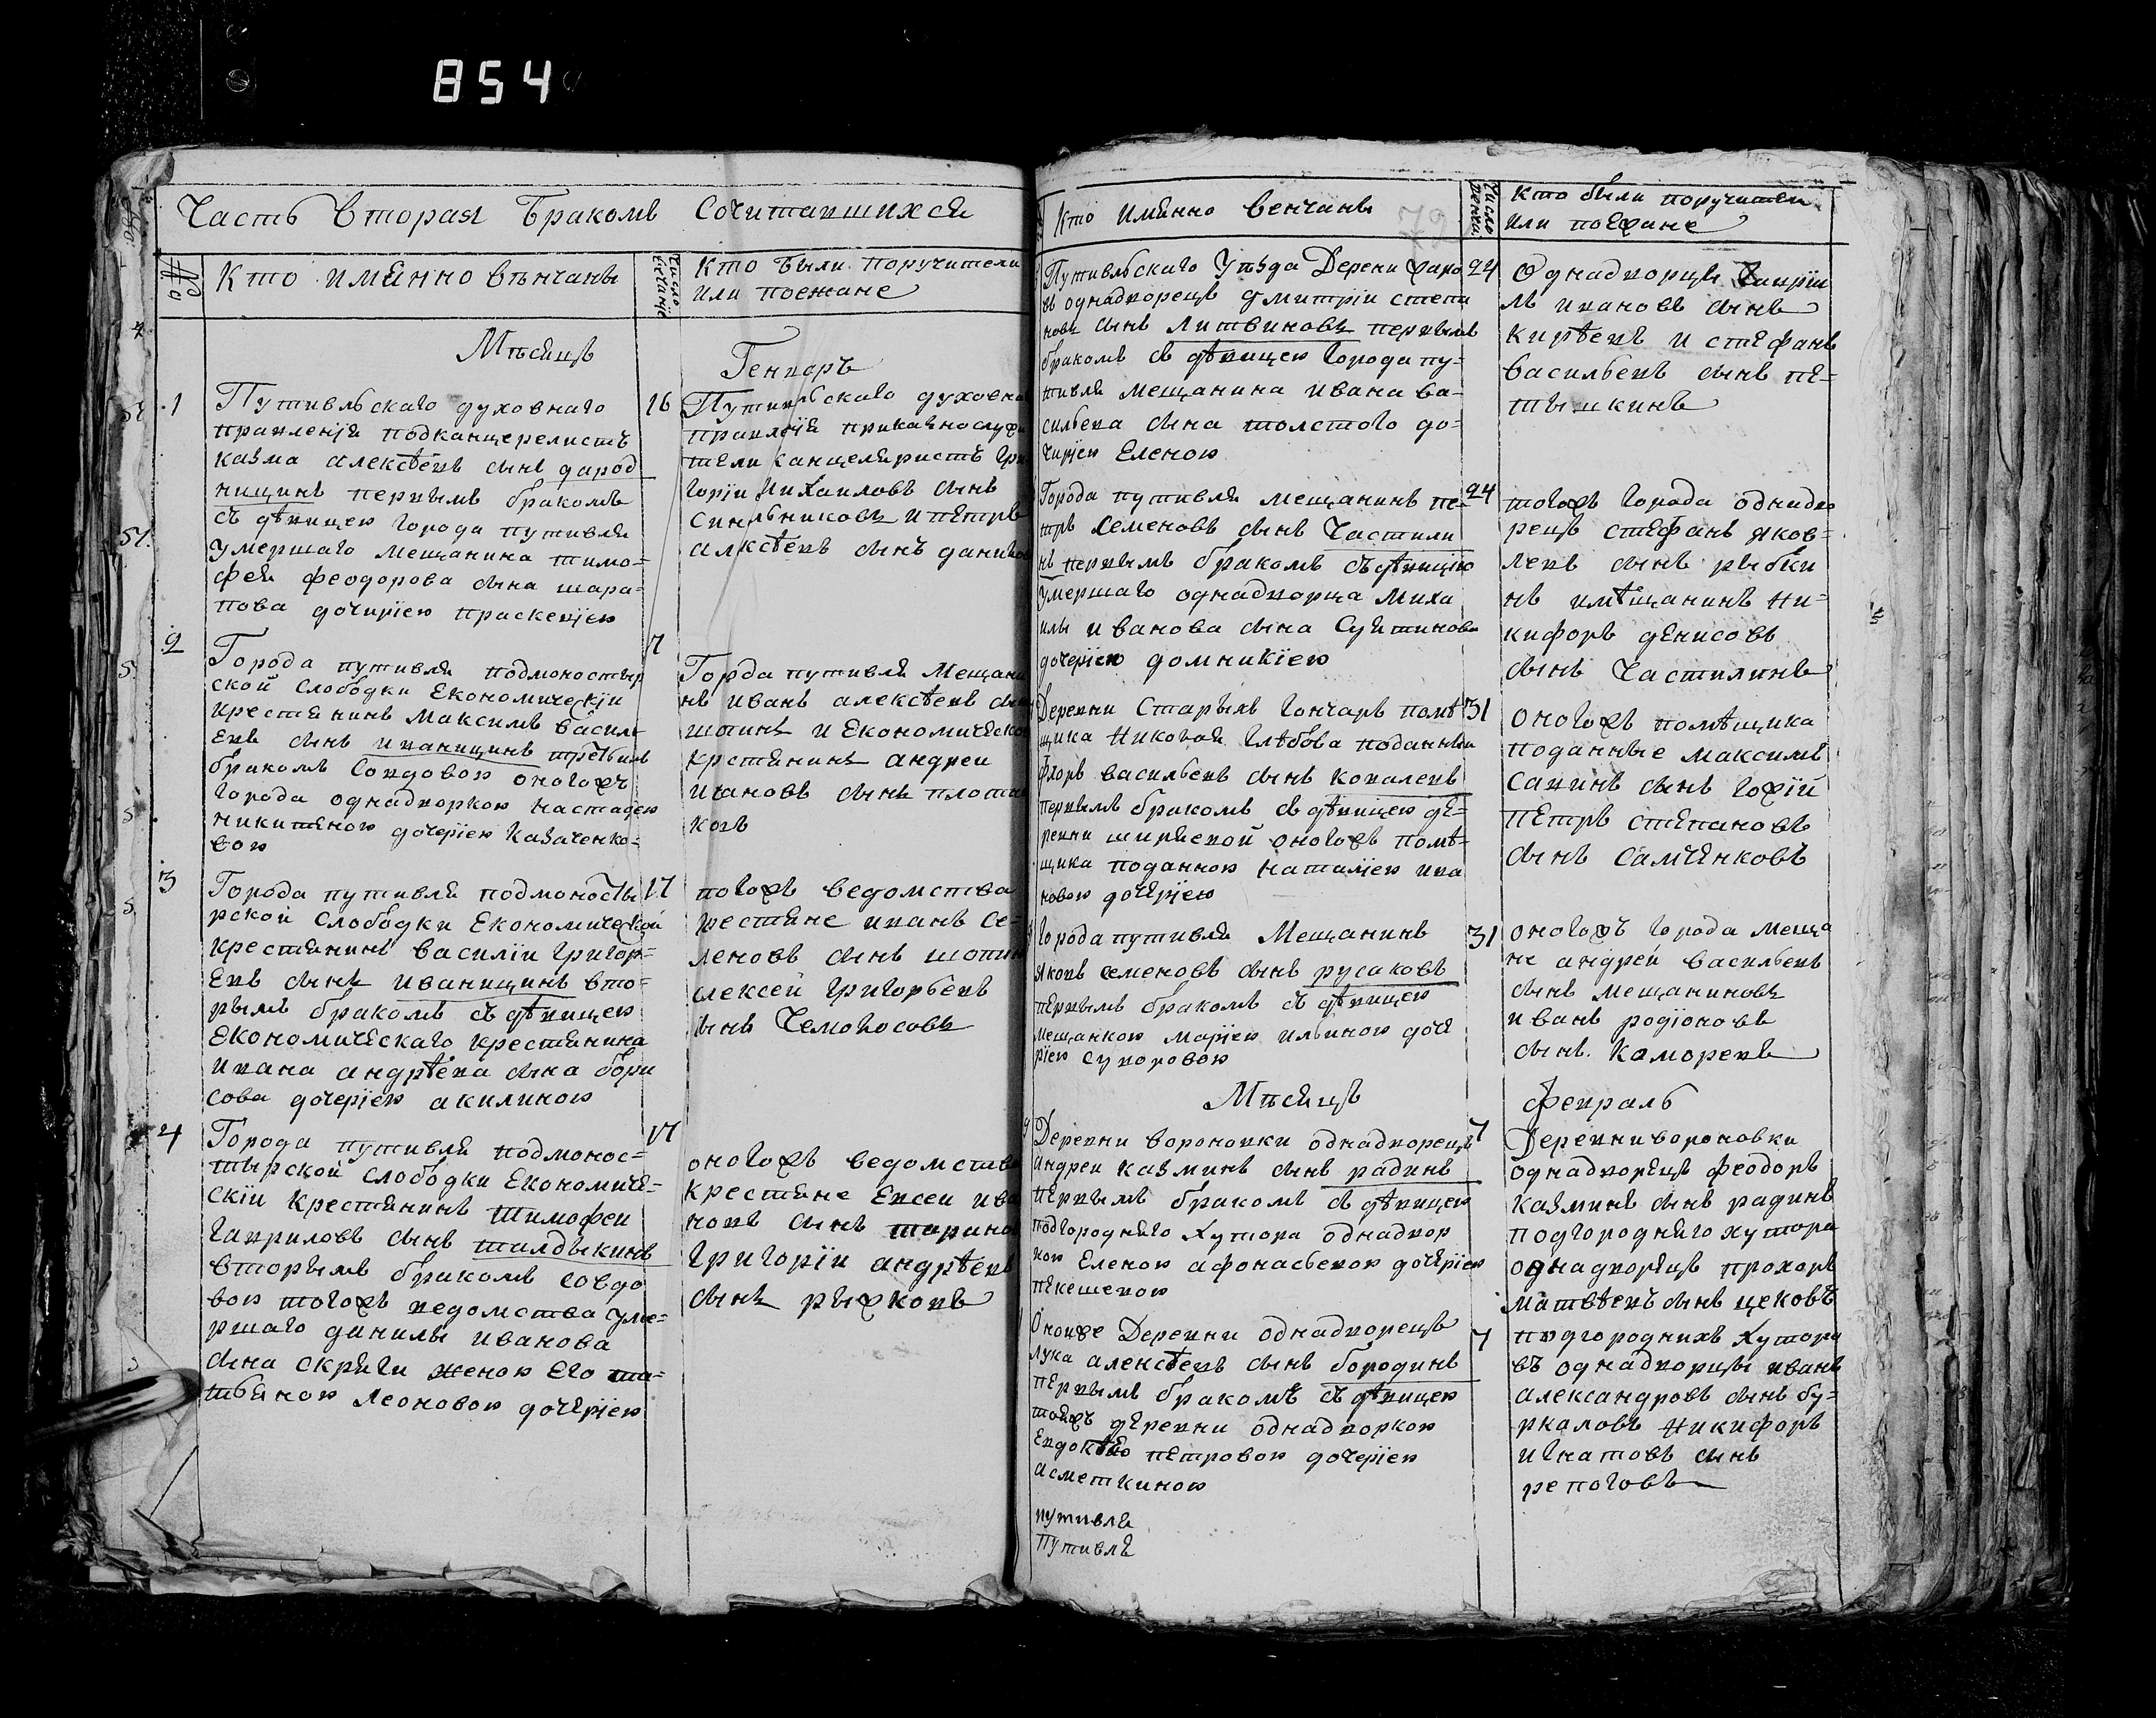 854
Часть вторая бракомъ сочитавшихся
№
Кто имянно вѣнчаны
Число венчанїе
Кто были поручители
или поежане
Мѣсяцъ
Генваръ
1
Путивльского духовнаго
правленїя подканцерелистъ
казма алексѣевъ сынъ дарод
нищинъ первымъ бракомъ
съ дѣвицею города путивля
умершаго мещанина тимо-
фея феодорова сына шара-
пова дочирїею праскевїею
16
Путивльскаго духовна
правлѣнїя
тели канцеляристъ гри
горїи михаиловъ сынъ
синельниковъ и пѣтръ
алксѣевъ сынъ
2
Города путивля подмоностыр
ской слободки економическїи
крестянинъ максимъ василь
евъ сынъ иванищинъ третьимъ
бракомъ совдовою оногожъ
города однадворкою настасею
никитяною дочерїею казаченко-
вою
7
Города путивля мещани
нъ иванъ алексѣевъ сын
шопинъ и економическо
крстянинъ андреи
ивановъ сынъ плотни
ковъ
3
Города путивля подмоносты
рской слободки економической
крестянинъ василїи григор-
евъ сынъ иванищинъ вто-
рымъ бракомъ съ дѣвицею
економическаго крестянина
ивана андрѣева сына бори
сова дочерїею акилиною
17
тогожъ ведомства
крестяне иванъ се-
меновъ сынъ шопин
алексей григорьевъ
сынъ Чемоносовъ
4
Города путивля подмонос-
тырской слободки економиче-
скїи крестянинъ тимофеи
гавриловъ сынъ талдыкинъ
вторымъ бракомъ совдо
вою тогожъ ведомства уме-
ршаго данилы иванова
сына скряги женою его та-
тьяною леоновою дочерїею
17
оногожъ ведомства
крестяне евсеи ива
новъ сынъ таранов
григорїи андрѣевъ
сынъ рыжковъ
Кто имянно венчаны
79
Число венчи.
кто были поручители
или поежане
Путивльскаго уѣзда Деревни
въ однадворецъ дмитрїи степа
новъ сынъ литвиновъ первымъ
бракомъ съ дѣвицею города пу-
тивля мещанина ивана ва-
сильева сына толстого до-
чирїею еленою
24
Однадворцы гаврїи
лъ ивановъ сынъ
кирѣевъ и стефанъ
васильевъ сынъ пѣ-
тышкинъ
Города путивля мещанинъ пе-
тръ семеновъ сынъ Частили
нъ первымъ бракомъ съ дѣвицїю
умершаго однадворца миха
илы иванова сына сушинова
дочерїею домникїею
24
тогожъ города однадво
рецъ стефанъ яков-
левъ сынъ рыбки
нъ имѣщанинъ ни-
кифоръ денисовъ
сынъ Частилинъ
Деревни старыхъ гончаръ помѣ
щика николая глѣбова поданныи
флоръ васильевъ сынъ ковалевъ
первымъ бракомъ съ дѣвицею де-
ревни ширяевой оногожъ помѣ-
щика поданною наталїею ива
новою дочерїею
31
оногожъ помѣщика
поданные максимъ
савинъ сынъ гожїй
петръ степановъ
сынъ самченковъ
города путивля мещанинъ
яковъ семеновъ сынъ русаковъ
первымъ бракомъ съ дѣвицею
мещанкою марїею ильиною доче
рїею суворовою
31
оногожъ города меща
не андрей васильевъ
сынъ мещаниновъ
иванъ родїоновъ
сынъ каморевъ
Мѣсяцъ
февраль
Деревни вороновки однадворецъ
андреи казминъ сынъ радинъ
первымъ бракомъ съ дѣвицею
подгороднего хутора однадвор
кою еленою афонасьевою дочерїею
пекешевою
7
Деревни вороновки
однадворецъ феодоръ
казминъ сынъ радинъ
подгороднего хутора
однадворецъ прохоръ
матвѣевъ сынъ цековъ
Оноиже деревни однадворецъ
лука алексѣевъ сынъ бородинъ
первымъ бракомъ съ дѣвицею
тоеяжъ деревни однадворкою
евдокѣею петровою дочерїею
асметкиною
7
подгороднихъ хуторо
въ однадворцы иванъ
александровъ сынъ бу-
ркаловъ никифоръ
игнатовъ сынъ
репоговъ
путивля
путивля